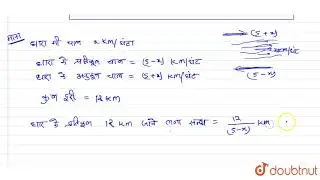 माना धारा की चाल x km/घंटा
धारा के प्रतिकूल चाल = (5-x) km/घंटा
धारा के अनुकूल चाल = (5+x) km/घंटा
कुल दूरी = 12 km
धारा के प्रतिकूल 12 km जाने लगा समय = 12/(5-x) km
(5+x)
x km/घंटा
(5-x)
doubtnut